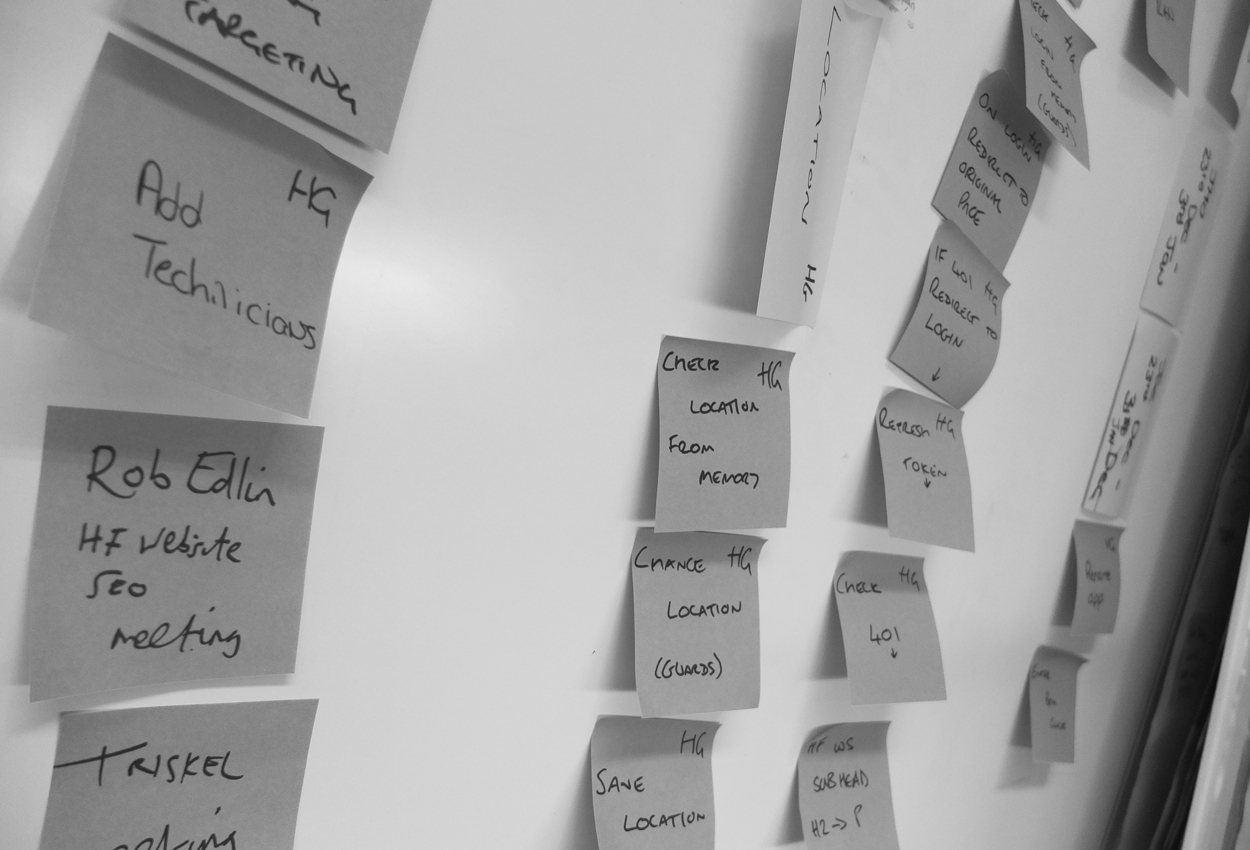 TARGETING
HG
Add
Technicians
Rob Edlin
HF website
SEO
meeting
TRISKEL
LOCATION HG
CHECK HG
LOCATION
FROM
MEMORY
CHANGE HG
LOCATION
(GUARDS)
HG
SAVE
LOCATION
HG
LOGIN
FROM
MEMORY
(GUARDS)
ON LOGIN HG
REDIRECT TO
ORIGINAL
PAGE
IF 401 HG
REDIRECT TO
LOGIN
↓
REFRESH HG
TOKEN
↓
CHECK HG
401
↓
HF WS
SUBHEAD
H2→P
23rd Dec -
3rd Jan
23rd Dec -
HG
app